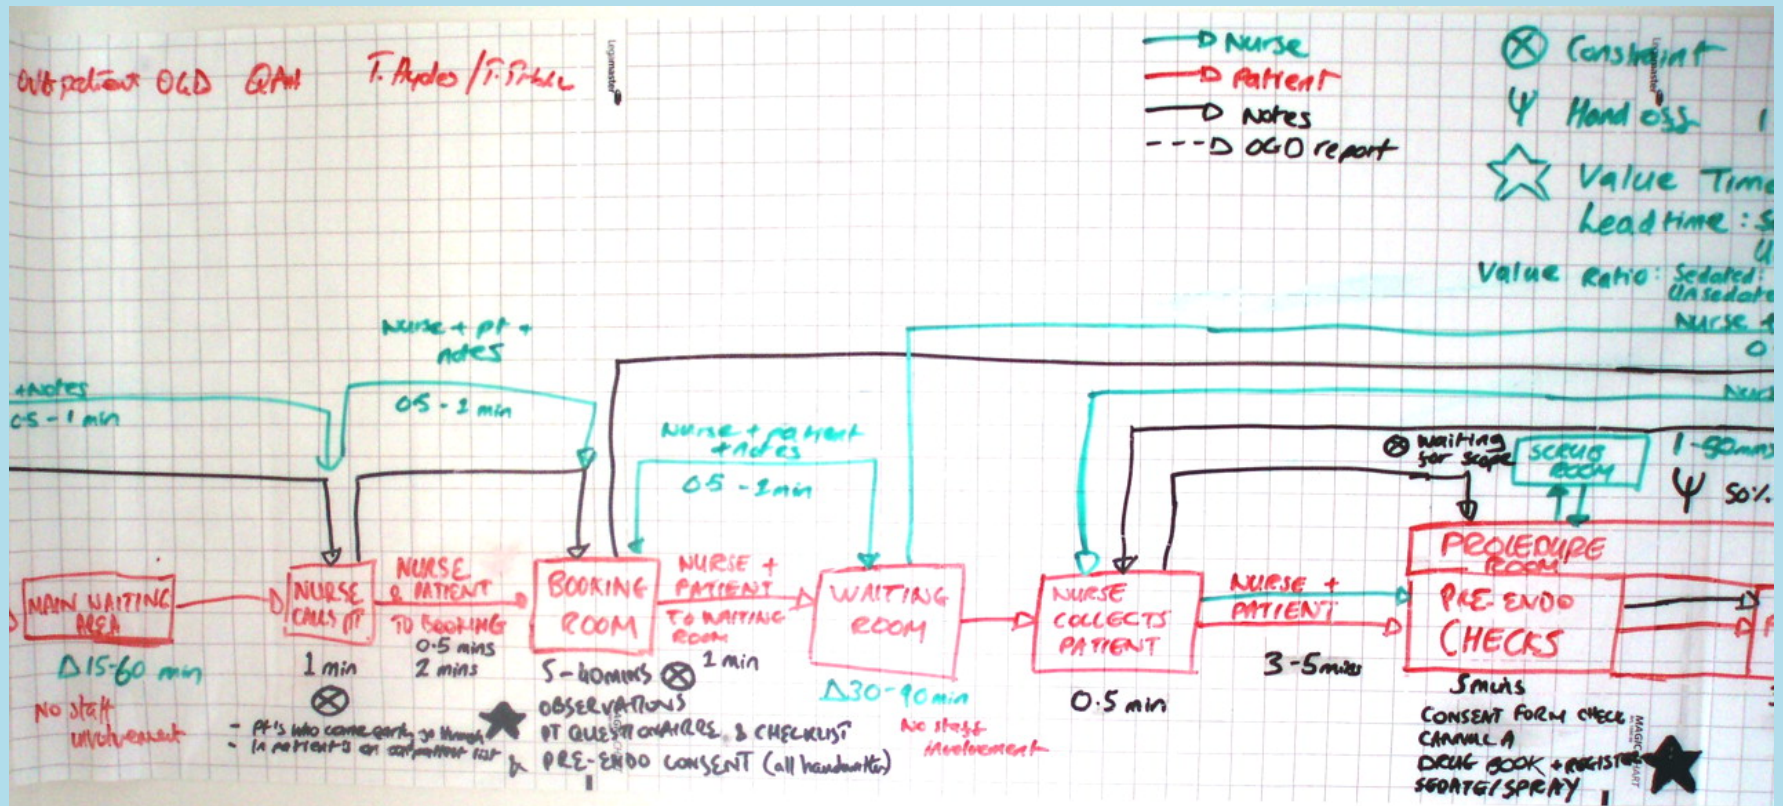 Outpatient OGD QAH T. Aydes / T. 
Legimaster
Nurse
Patient
Notes
OGD report
Constraint
Hand off
Value Time
Lead time :
Value Ratio : Sedated:
Unsedate
Nurse +
0
Nurs
Nurse + pt +
notes
0.5 - 2 min
+ Notes
0.5 - 1 min
Nurse + patient
+ notes
0.5 - 2 min
waiting
for scope
SCRUB
ROOM
1-90mins
50%
MAIN WAITING
AREA
Δ15-60 min
No staff
involvement
NURSE
CALLS PT
1 min
- Pt's who come early go through
- In patient's on outpatient list
NURSE
& PATIENT
TO BOOKING
0.5 mins
2 mins
BOOKING
ROOM
5-40mins
OBSERVATIONS
PT QUESTIONAIRRE & CHECKLIST
& PRE-ENDO CONSENT (all handwritten)
NURSE +
PATIENT
TO WAITING
ROOM
2 min
WAITING
ROOM
Δ30-90min
No staff
involvement
NURSE
COLLECTS
PATIENT
0.5 min
NURSE +
PATIENT
3-5mins
PROCEDURE
ROOM
PRE-ENDO
CHECKS
5mins
CONSENT FORM CHECK
CANNULA
DRUG BOOK + REGISTER
SEDATE/SPRAY